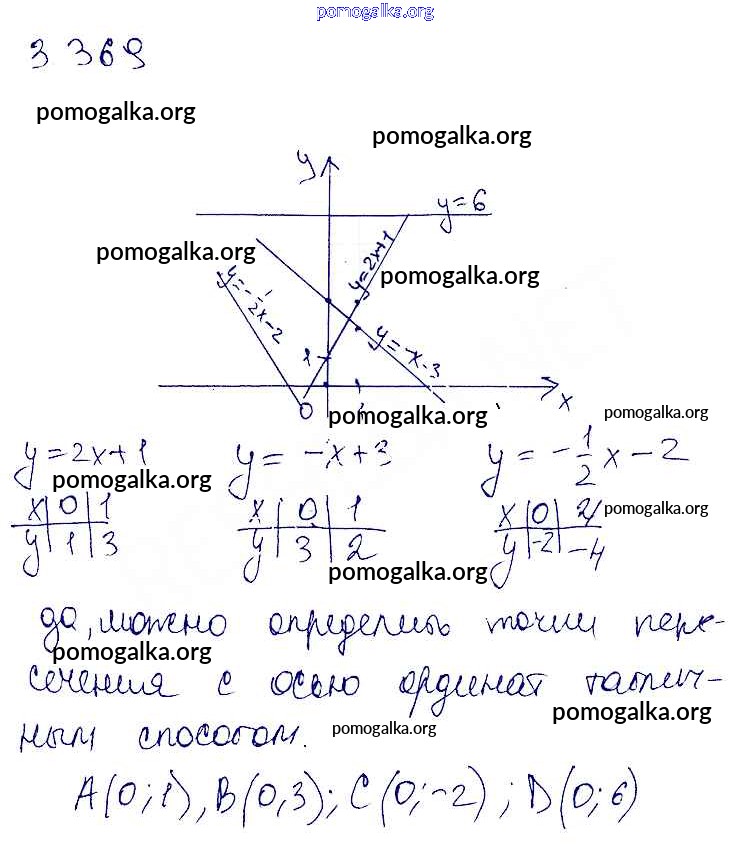 pomogalka.org
З 369
pomogalka.org
pomogalka.org
y
y=6
pomogalka.org
y=2x+1
pomogalka.org
y=-1/2x-2
1
y=-x-3
1
x
0
pomogalka.org
pomogalka.org
y=2x+1 y= -x+3 y= -1/2x-2
pomogalka.org
x 0 1 x 0 1 x 0 2
pomogalka.org
y 1 3 y 3 2 y -2 -4
pomogalka.org
да, можно определить точки пере-
pomogalka.org
сечения с осью ординат таким
pomogalka.org
способом.
pomogalka.org
A(0;1), B(0,3); C(0;-2); D(0;6)